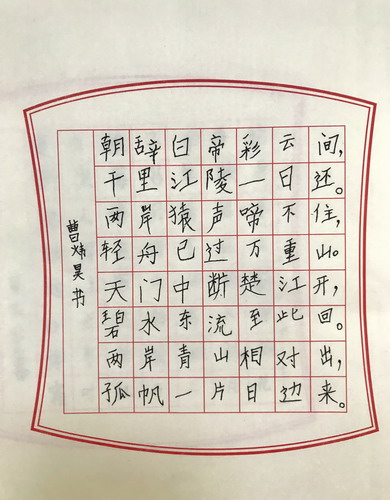 朝辞白帝彩云间，
千里江陵一日还。
两岸猿声啼不住，
轻舟已过万重山。
天门中断楚江开，
碧水东流至此回。
两岸青山相对出，
孤帆一片日边来。
曹炜昊书